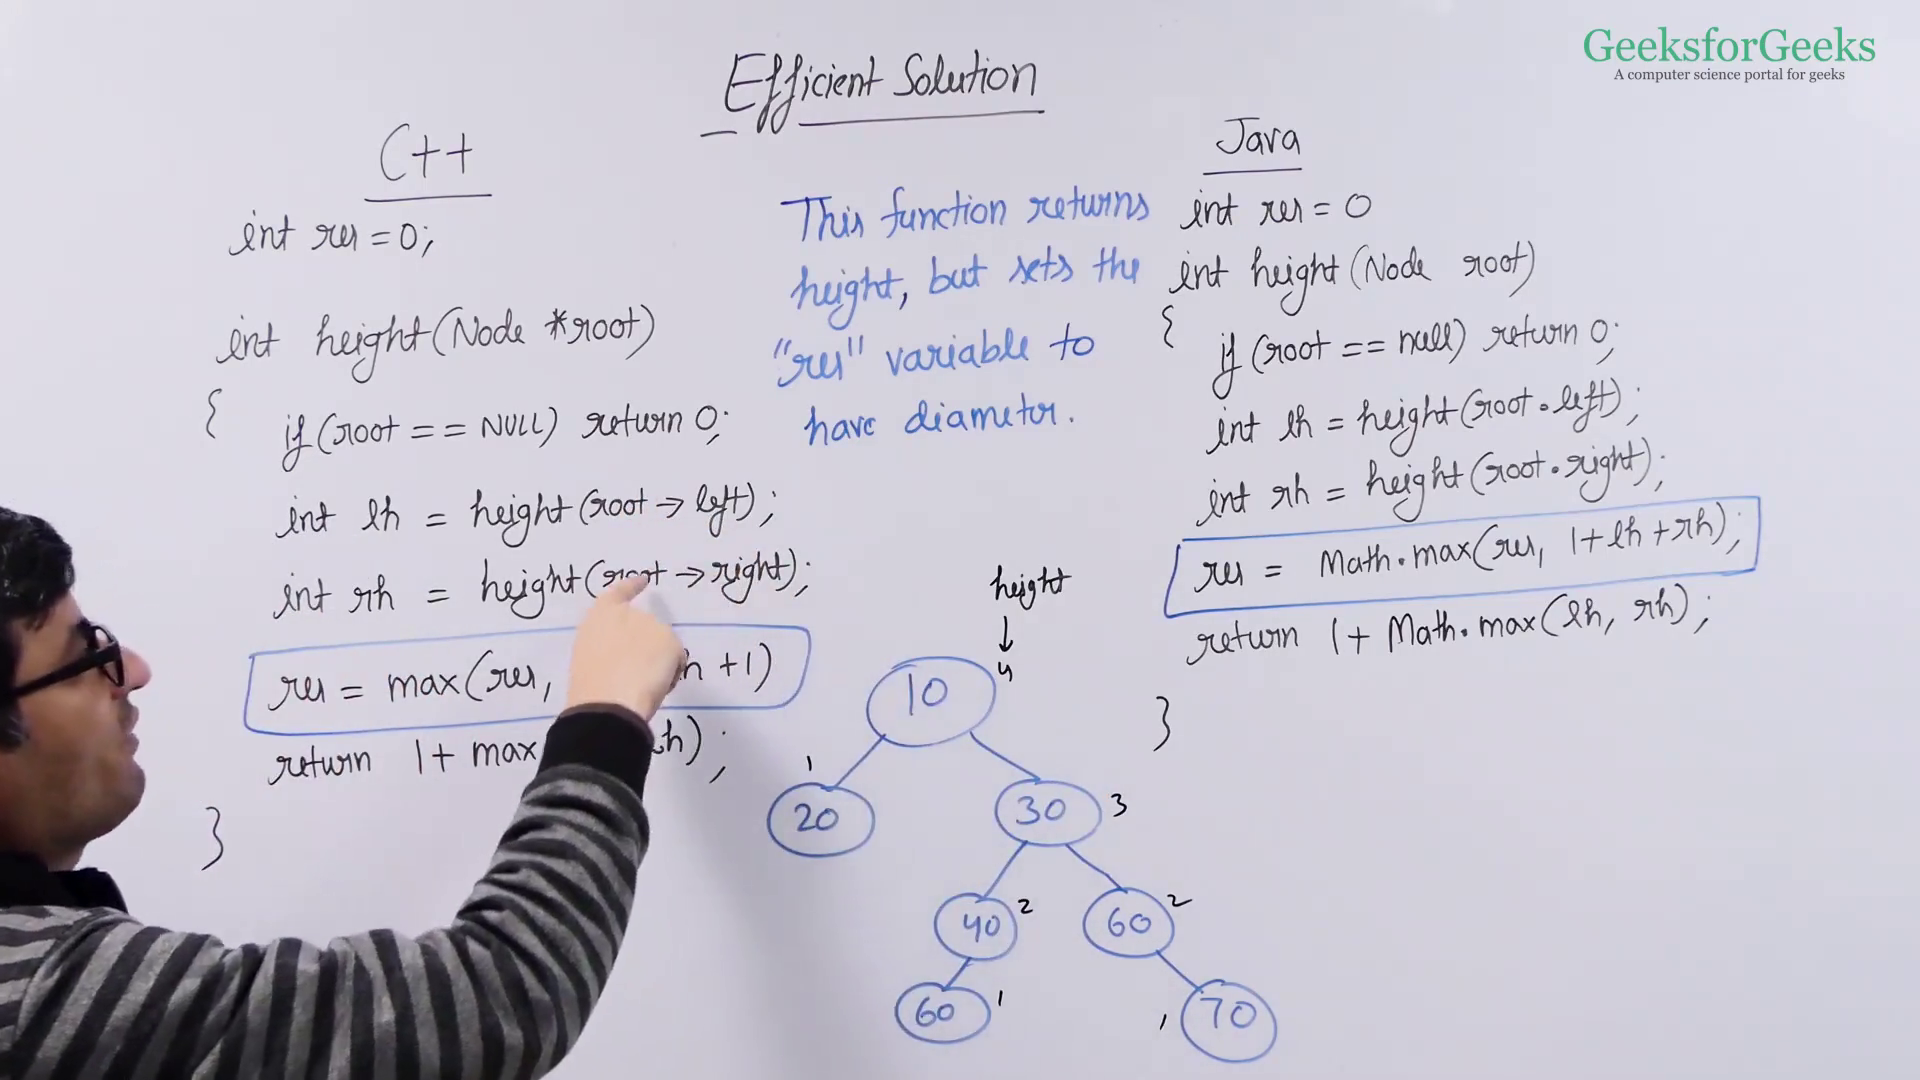 GeeksforGeeks
A computer science portal for geeks
Efficient Solution
C++
int res = 0;
int height(Node *root)
{
if(root == NULL) return 0;
int lh = height(root → left);
int rh = height(root → right);
res = max(res, h + 1)
return 1 + max h);
}
This function returns
height, but sets the
"res" variable to
have diameter.
Java
int res = 0
int height(Node root)
{
if(root == null) return 0;
int lh = height(root.left);
int rh = height(root.right);
res = Math.max(res, 1+lh+rh);
return 1 + Math.max(lh, rh);
}
height
↓
10 4
1
20
30 3
40 2
60 2
60 1
1 70